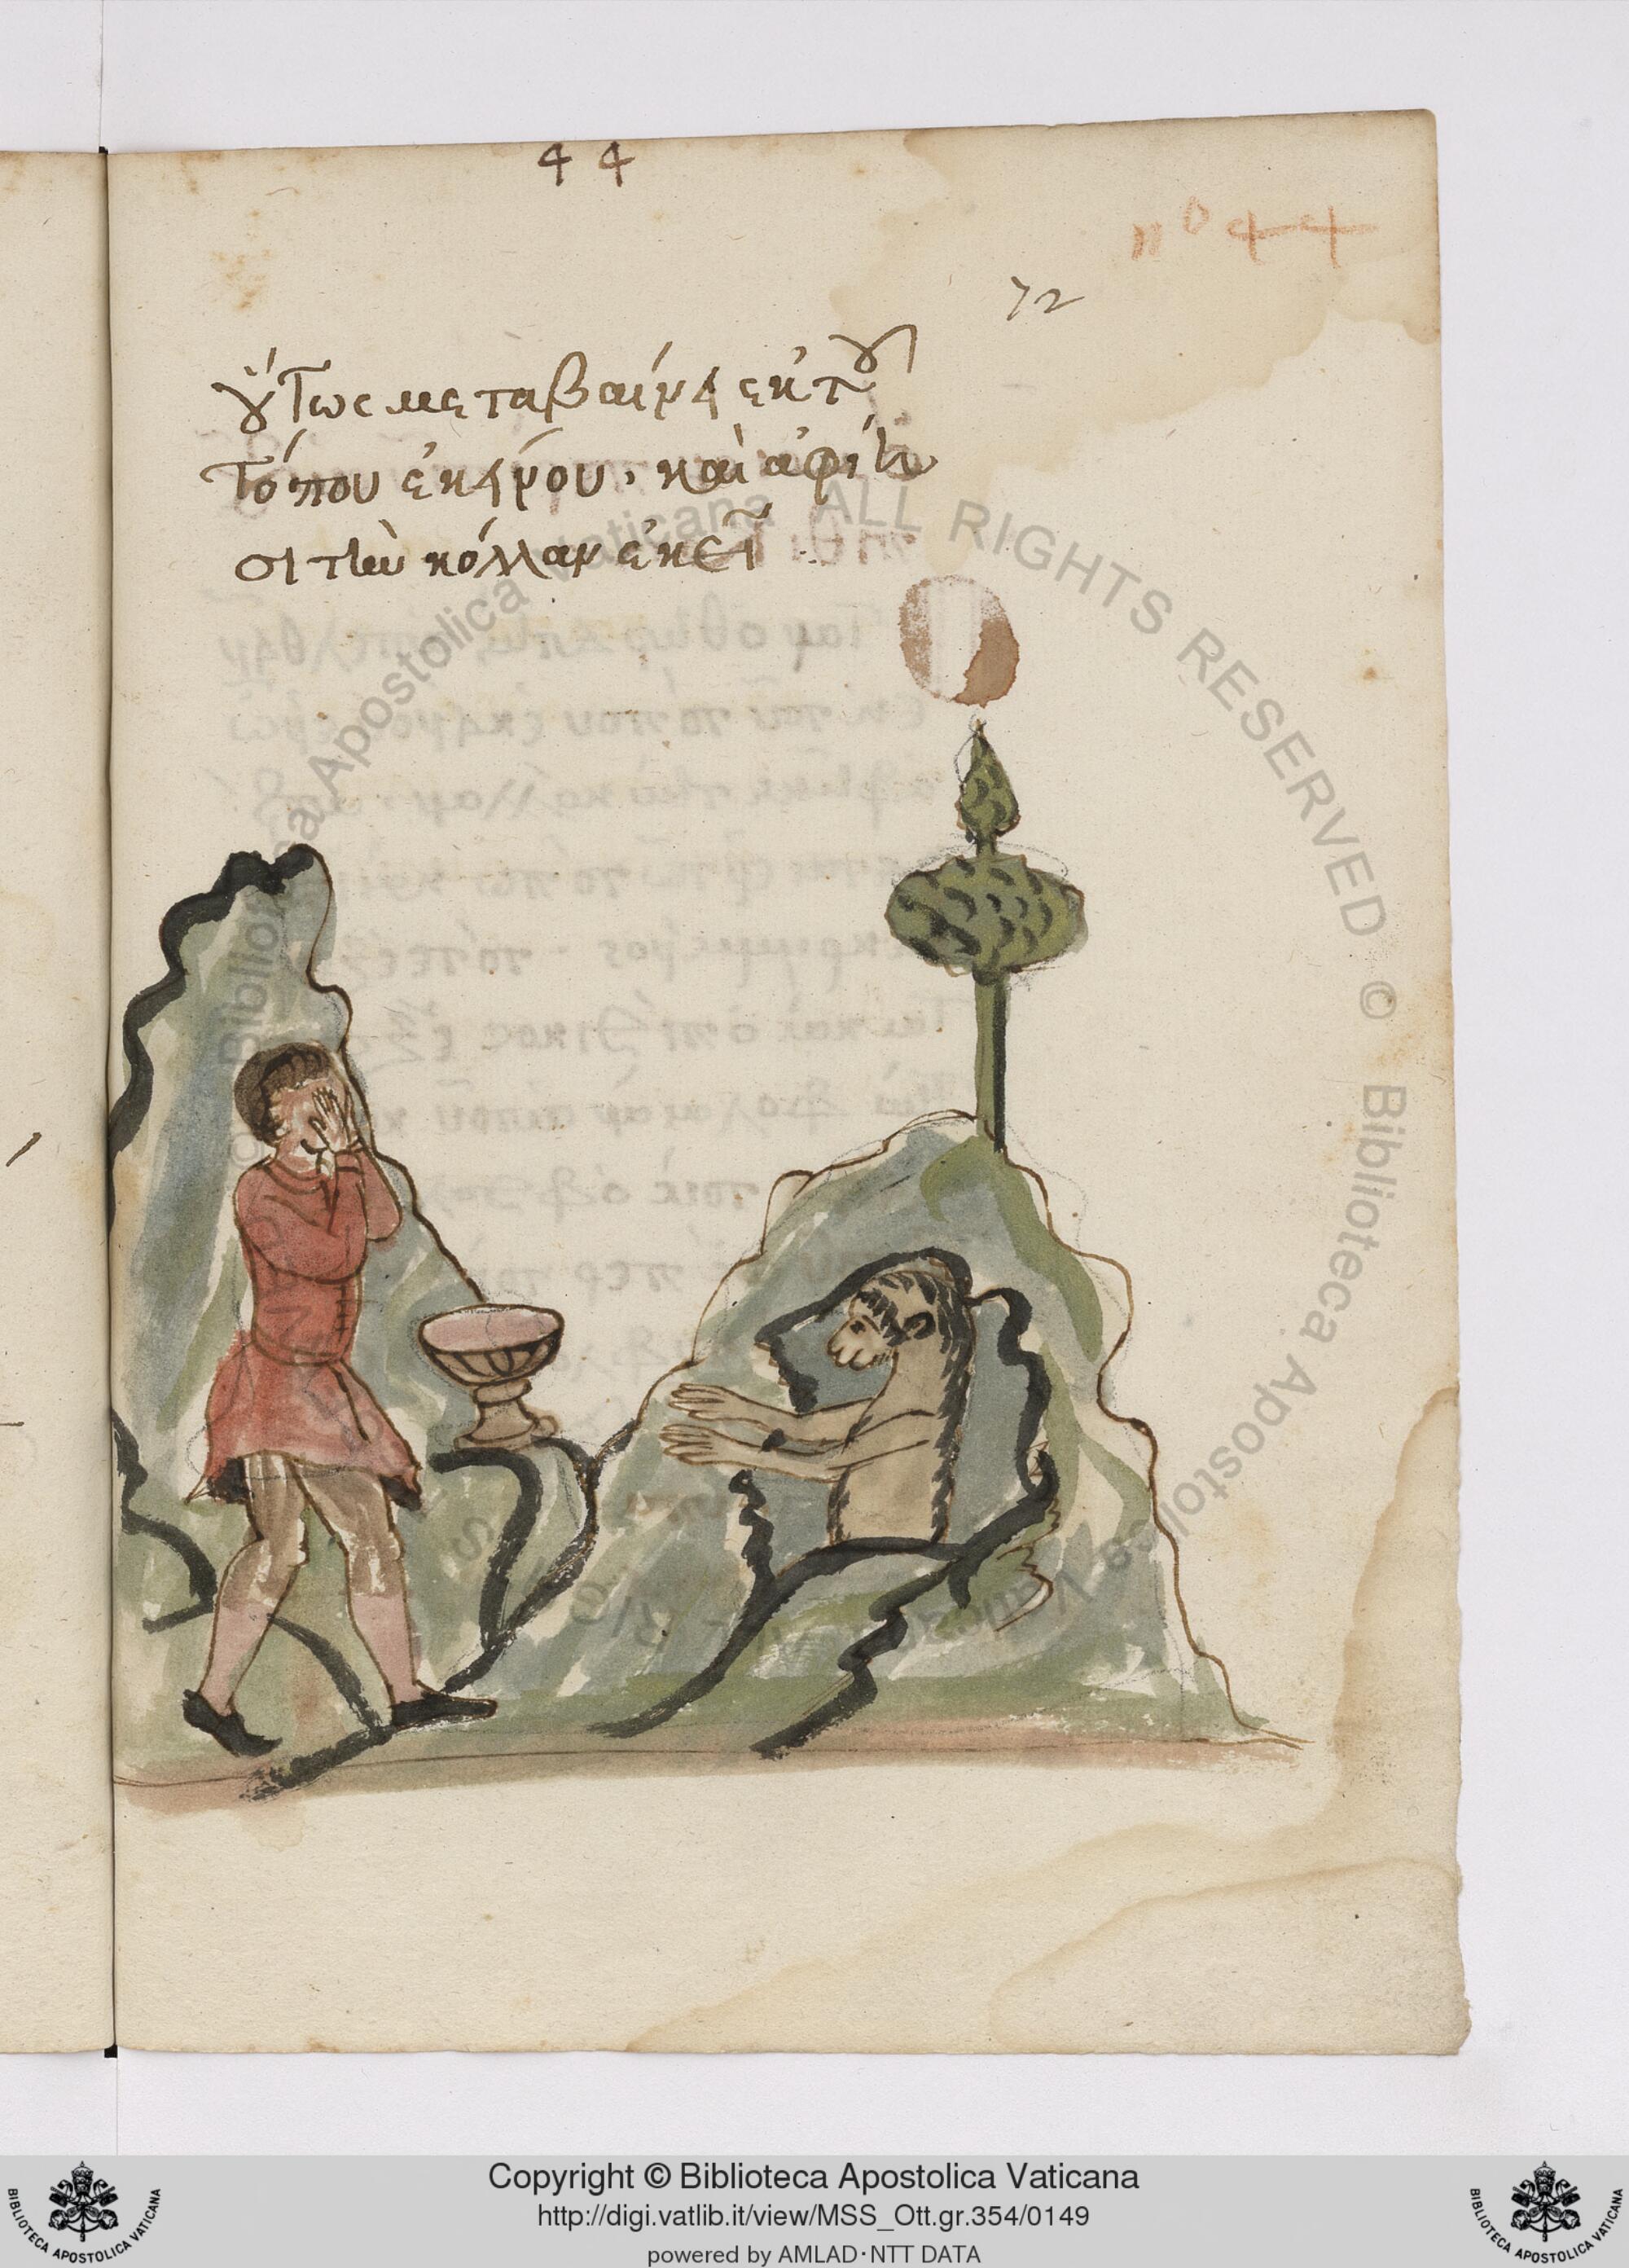 44
nº 44
72
οὕτως μεταβαίνει ἐκ τοῦ
τόπου ἐκείνου, καὶ ἀφίη
σι τὴν κόλλαν ἐκεῖ
ALL RIGHTS RESERVED © Biblioteca Apostolica Vaticana
Copyright © Biblioteca Apostolica Vaticana
http://digi.vatlib.it/view/MSS_Ott.gr.354/0149
powered by AMLAD·NTT DATA
BIBLIOTECA APOSTOLICA VATICANA
BIBLIOTECA APOSTOLICA VATICANA